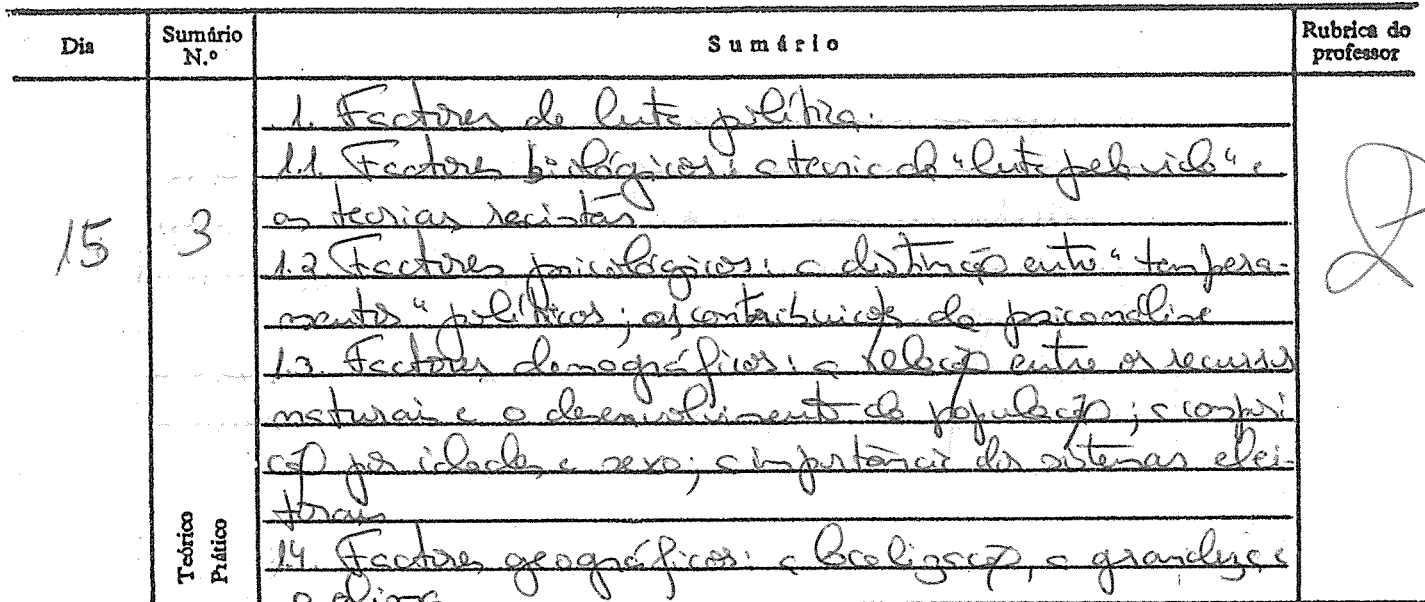 Dia Sumário N.º Sumário Rubrica do professor
1. Factores de luta política.
1.1. Factores biológicos: a teoria da "luta pela vida" e
as teorias racistas
15 3
1.2 Factores psicológicos: a distinção entre "tempera-
mentos" políticos; as contribuições da psicanálise
1.3. Factores demográficos: a relação entre os recursos
naturais e o desenvolvimento da população; a composi
ção por idades e sexo; a importância dos sistemas elei-
torais
Teórico
Prático
1.4 Factores geográficos: a localização, a grandeza e
o clima